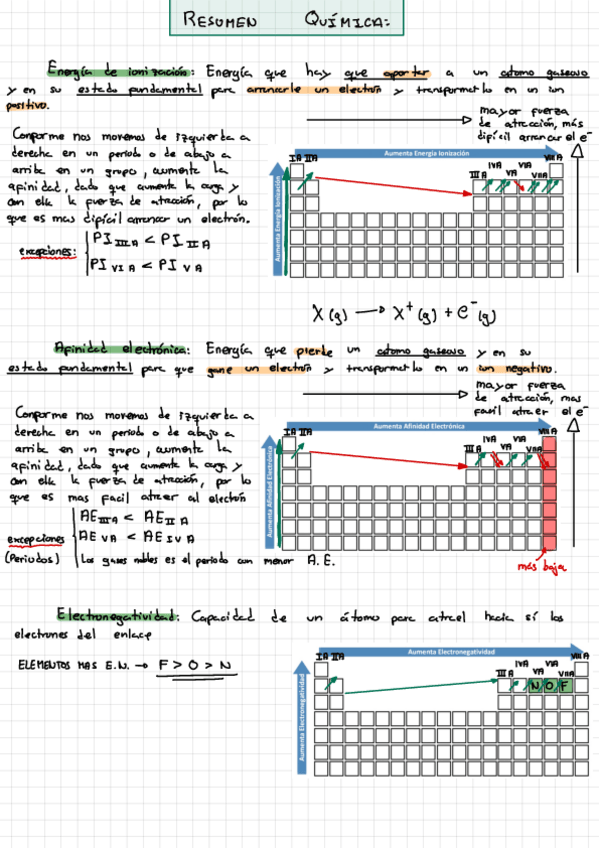 RESUMEN QUÍMICA:
Energía de ionización: Energía que hay que aportar a un átomo gaseoso
y en su estado fundamental para arrancarle un electrón y transformarlo en un ion
positivo.
mayor fuerza
de atracción, más
difícil arrancar el e⁻
Conforme nos movemos de izquierda a
derecha en un período o de abajo a
arriba en un grupo, aumenta la
afinidad, dado que aumenta la carga y
con ella la fuerza de atracción, por lo
que es mas difícil arrancar un electrón.
excepciones: PI III A < PI II A
PI VI A < PI V A
Aumenta Energía Ionización
Aumenta Energía Ionización
IA IIA III A IVA VA VIA VIIA VIII A
X(g) → X⁺(g) + e⁻(g)
Afinidad electrónica: Energía que pierde un átomo gaseoso y en su
estado fundamental para que gane un electrón y transformarlo en un ion negativo.
mayor fuerza
de atracción, mas
facil atraer el e⁻
Conforme nos movemos de izquierda a
derecha en un período o de abajo a
arriba en un grupo, aumenta la
afinidad, dado que aumenta la carga y
con ella la fuerza de atracción, por lo
que es mas facil atraer al electrón
excepciones (Periodos) AE III A < AE II A
AE VA < AE IVA
Los gases nobles es el periodo con menor A.E.
Aumenta Afinidad Electrónica
Aumenta Afinidad Electrónica
IA IIA III A IVA VA VIA VIIA VIII A
más baja
Electronegatividad: Capacidad de un átomo para atraer hacia sí los
electrones del enlace
ELEMENTOS MAS E.N. → F > O > N
Aumenta Electronegatividad
Aumenta Electronegatividad
IA IIA III A IVA VA VIA VIIA VIII A
N O F